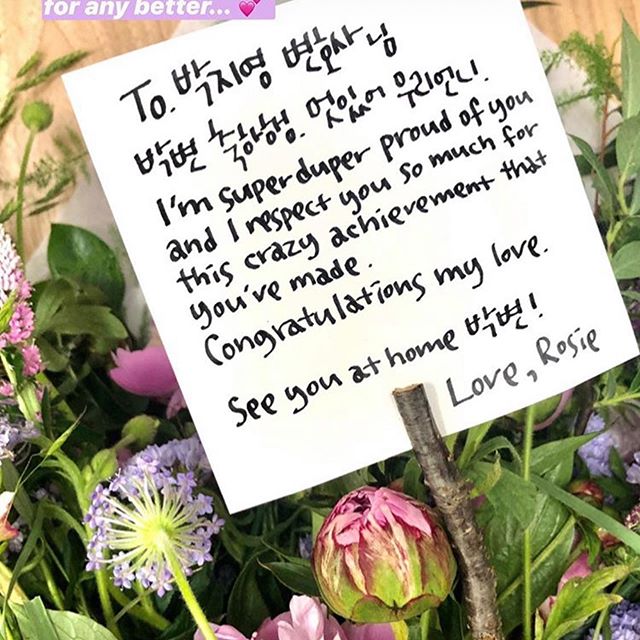 for any better... 💕
To. 박지영 변호사 님
박변 축하행. 멋있어 우리언니.
I'm super duper proud of you
and I respect you so much for
this crazy achievement that
you've made.
Congratulations my love.
See you at home 박변!
Love, Rosie